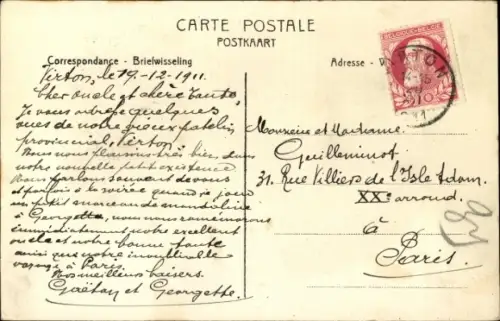 CARTE POSTALE
POSTKAART
Correspondance - Briefwisseling
Adresse -
BELGIQUE·BELGIE
VIRTON
Virton, le 19-12-1911.
Cher oncle et chère tante,
Je vous adresse quelques
vues de notre vieux patelin
provincial, Virton.
Nous nous plaisons très bien dans
notre nouvelle petite existence
Nous parlons souvent de vous
et parfois à la soirée quand je joue
un petit morceau de mandoline
à Georgette, nous nous remémorons
immédiatement notre excellent
oncle et notre bonne tante
ainsi que notre inoubliable
voyage à Paris.
Nos meilleurs baisers.
Gaëtan et Georgette.
Monsieur et Madame
Guilleminot
31, Rue Villiers de l'Isle Adam.
XXe arrond.
à
Paris.